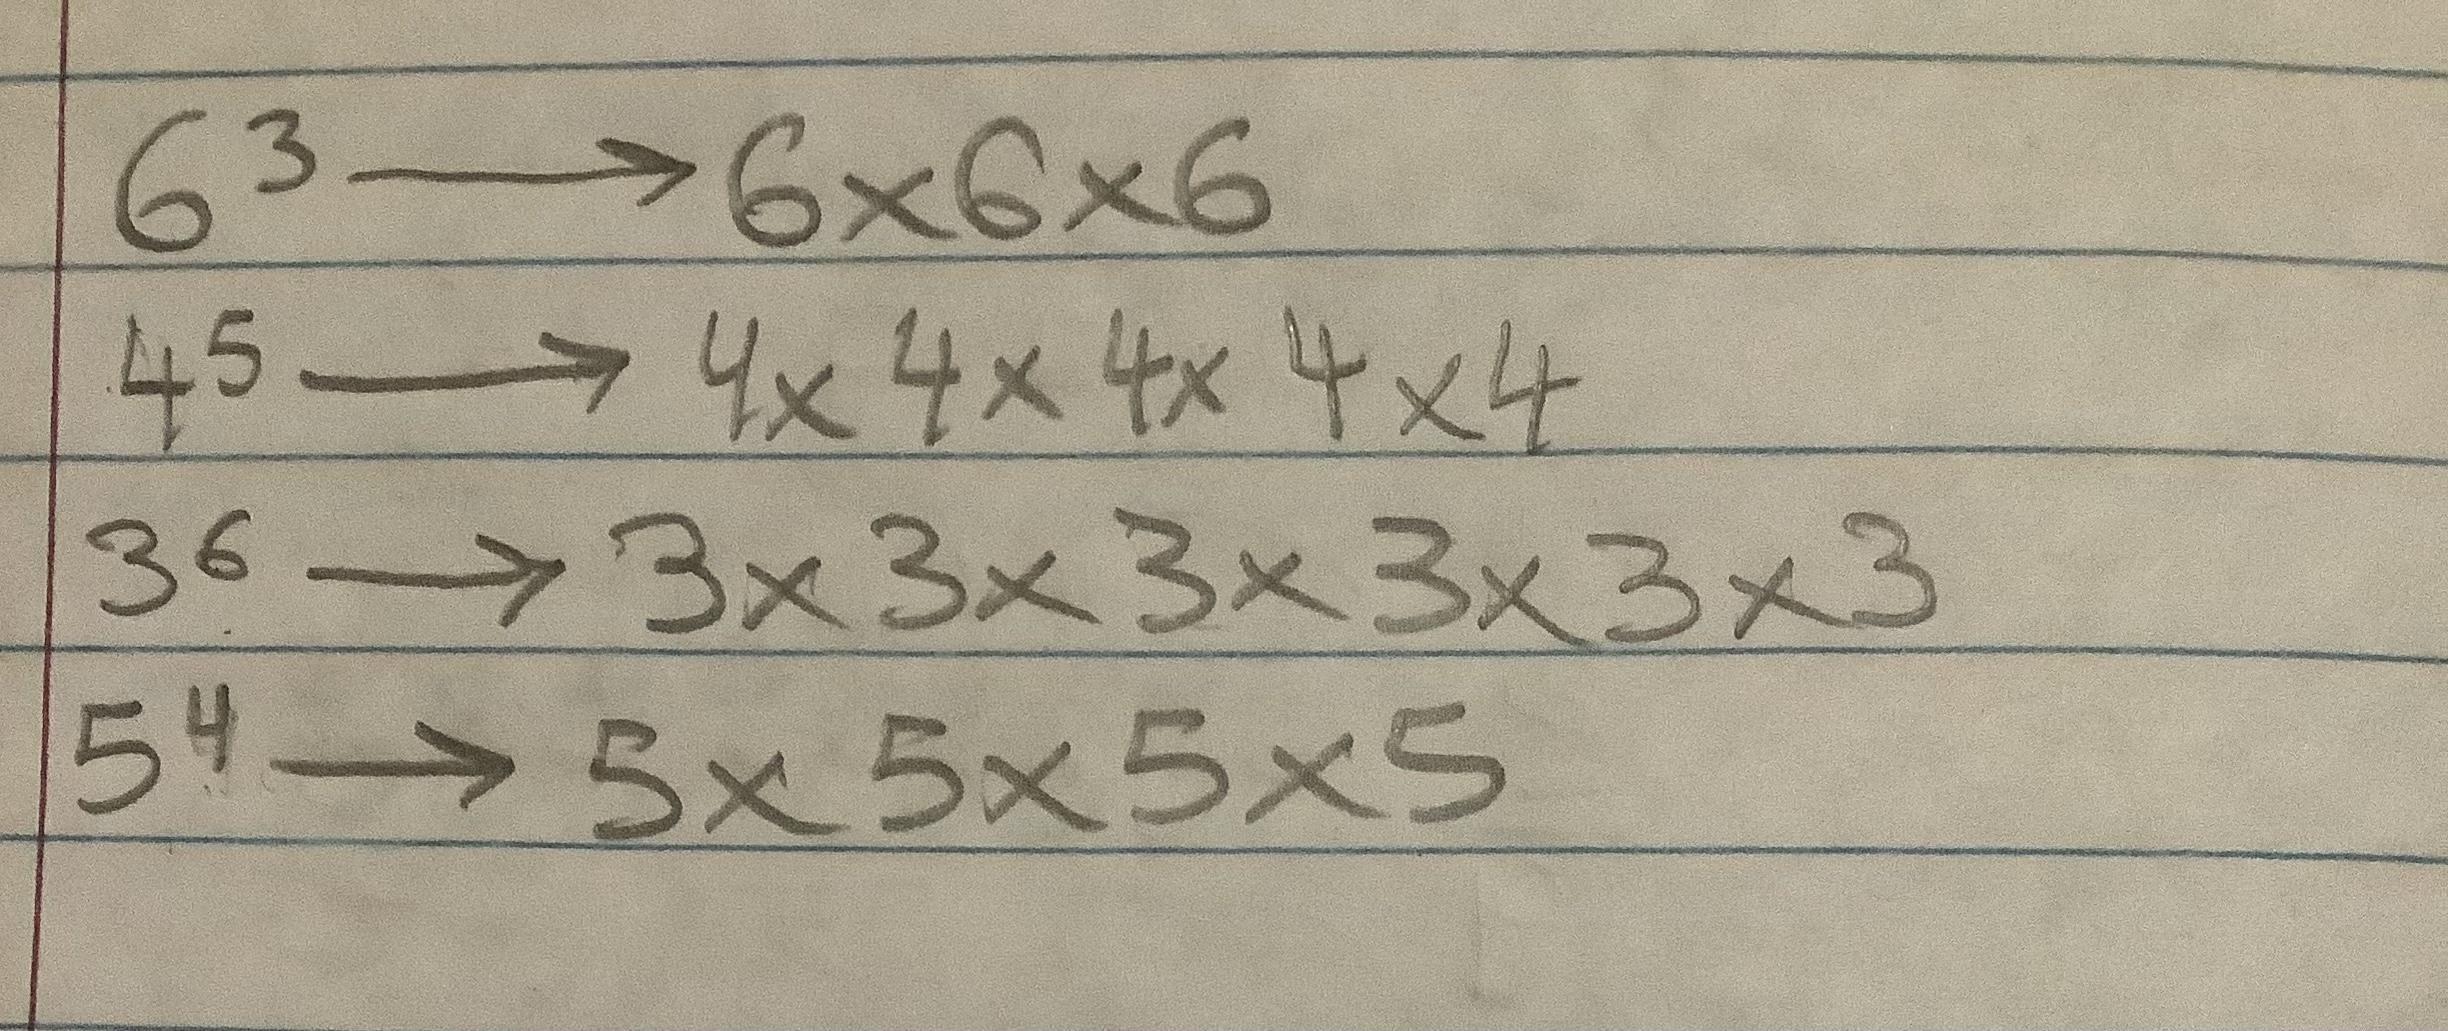 6³ → 6×6×6
4⁵ → 4× 4 × 4× 4 ×4
3⁶ → 3× 3× 3× 3× 3 ×3
5⁴ → 5× 5× 5×5